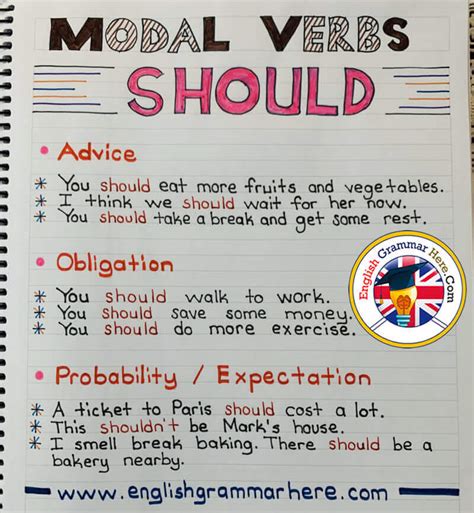 MODAL VERBS
SHOULD
• Advice
* You should eat more fruits and vegetables.
* I think we should wait for her now.
* You should take a break and get some rest.
• Obligation
* You should walk to work.
* You should save some money.
* You should do more exercise.
English Grammar Here.Com
• Probability / Expectation
* A ticket to Paris should cost a lot.
* This shouldn't be Mark's house.
* I smell break baking. There should be a
bakery nearby.
www.englishgrammarhere.com